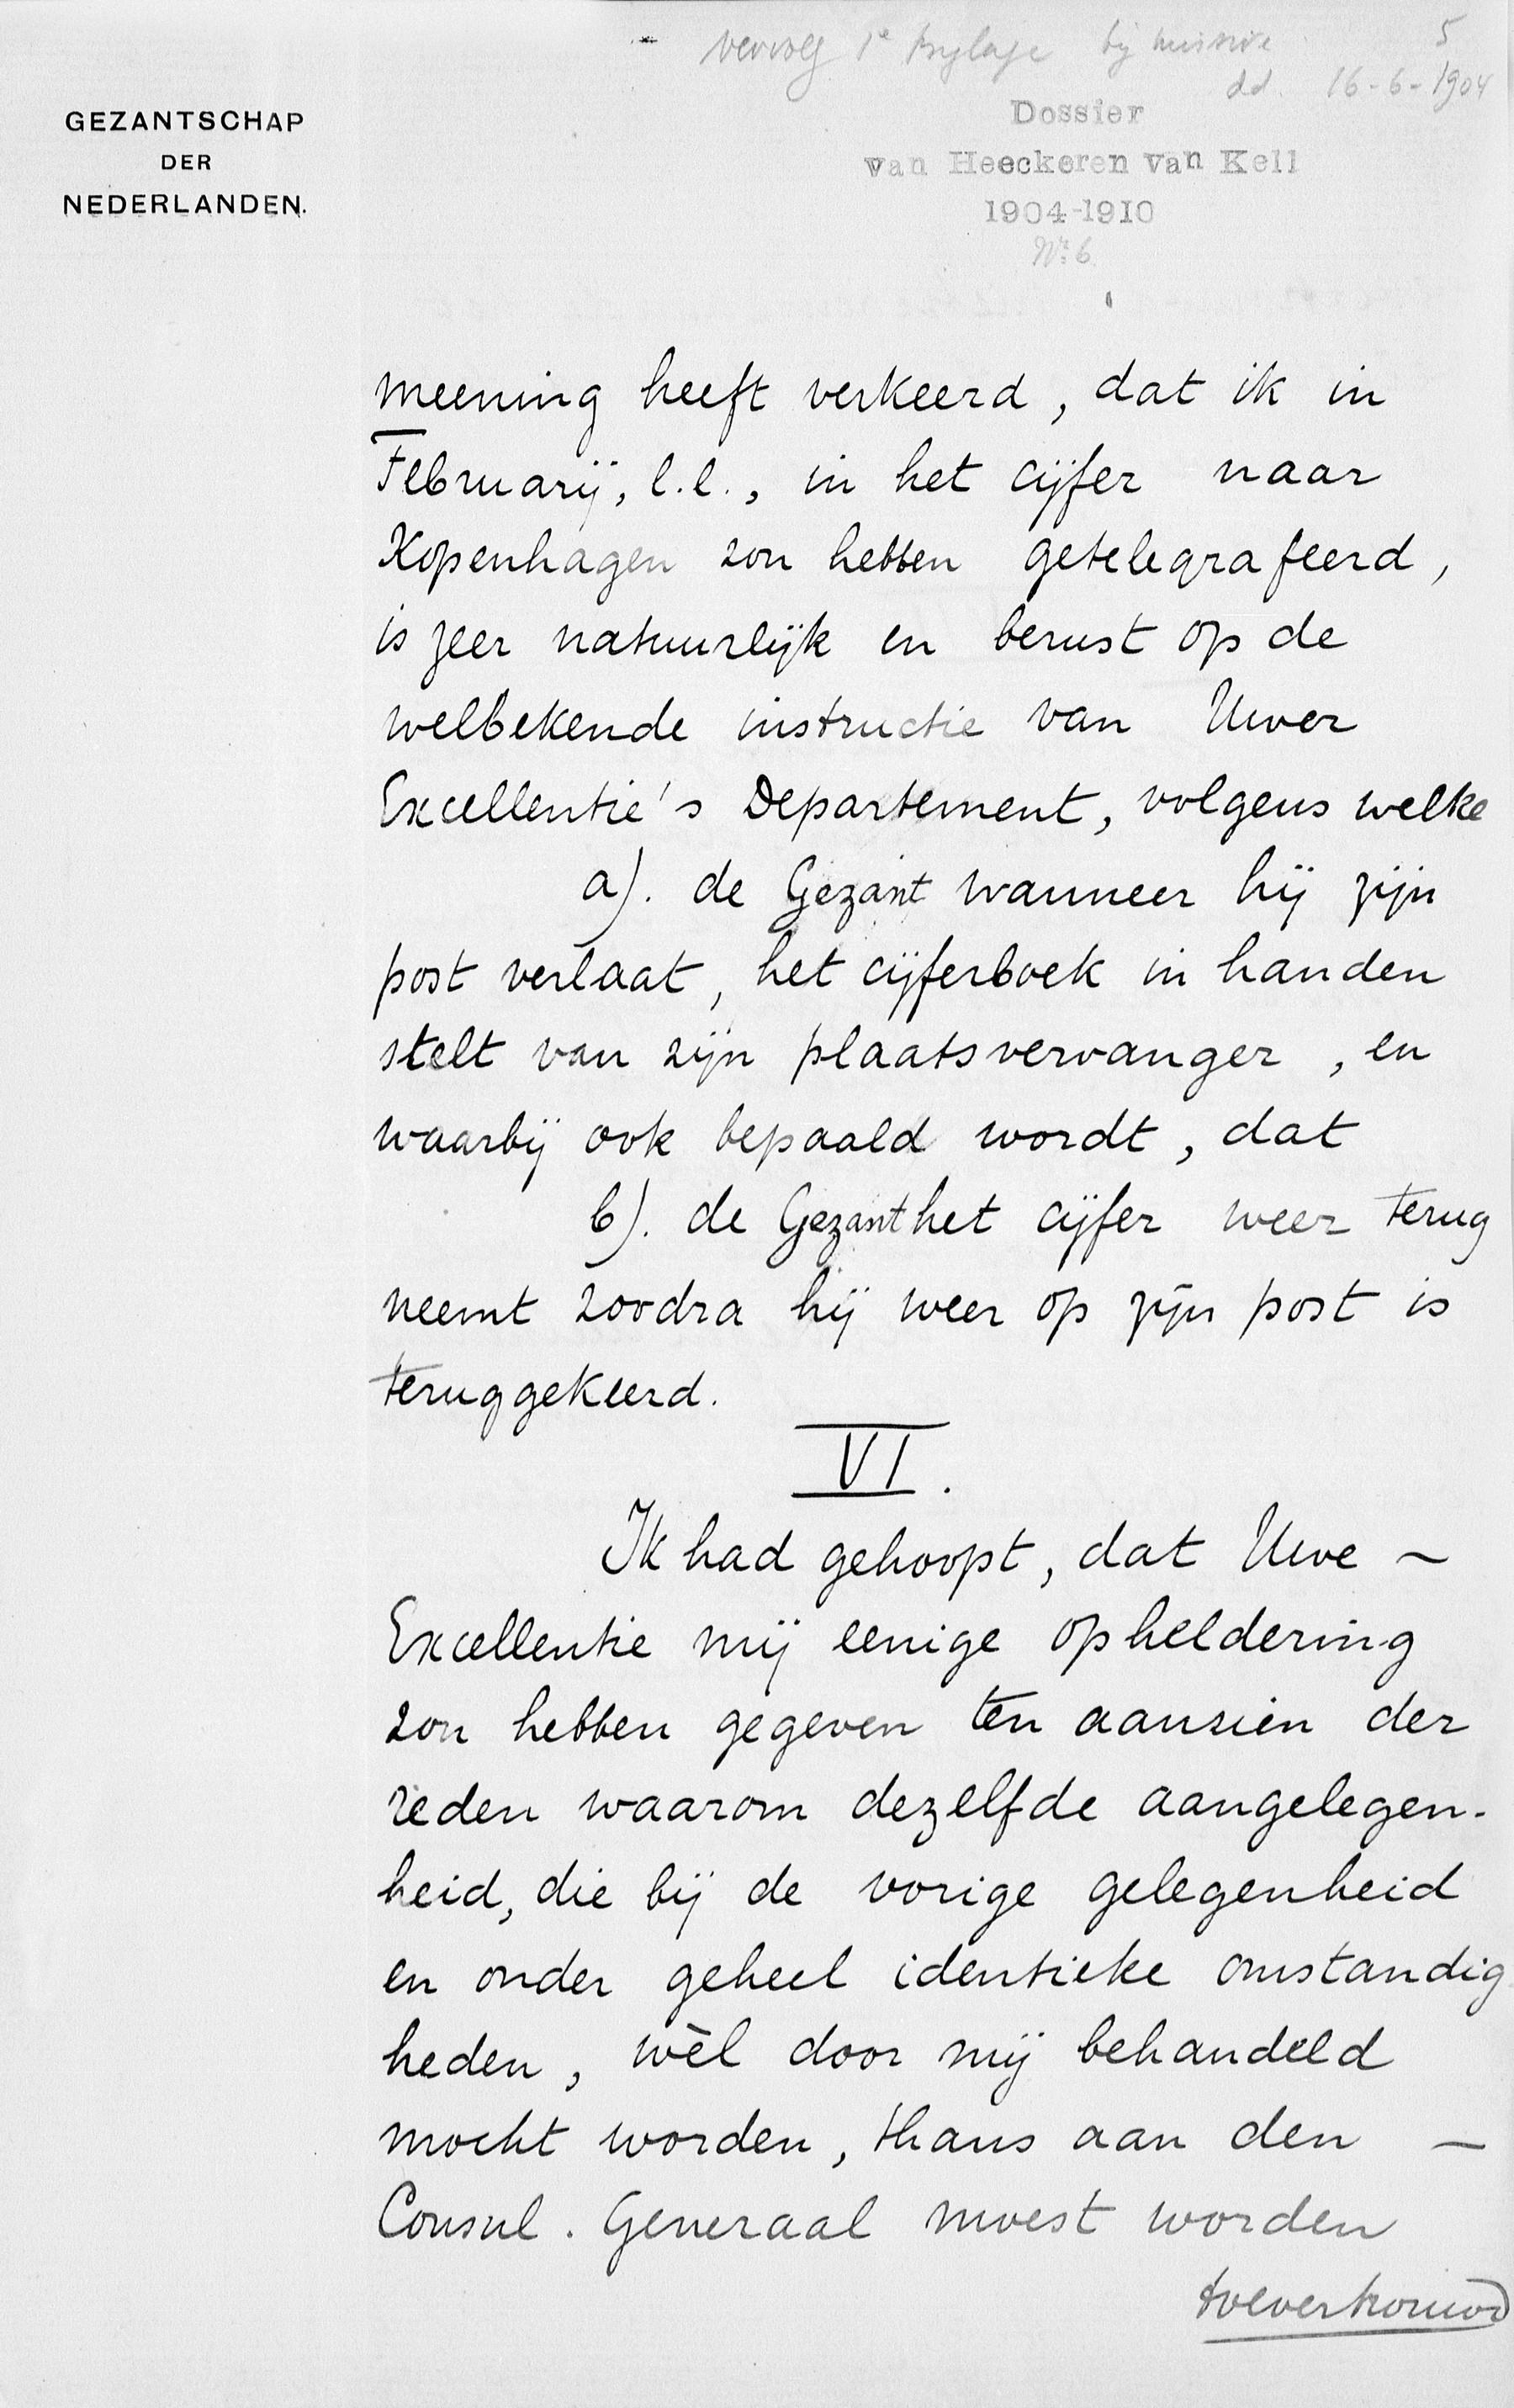 vervolg 1e bylage bij missive 5
dd. 16-6-1904
GEZANTSCHAP
DER
NEDERLANDEN.
Dossier
van Heeckeren van Kell
1904-1910
No. 6
meening heeft verkeerd, dat ik in
Februarij, l.l., in het cijfer naar
Kopenhagen zou hebben getelegrafeerd,
is zeer natuurlijk en berust op de
welbekende instructie van Uwer
Excellentie's Departement, volgens welke
a). de Gezant wanneer hij zijn
post verlaat, het cijferboek in handen
stelt van zijn plaatsvervanger, en
waarbij ook bepaald wordt, dat
b). de Gezant het cijfer weer terug
neemt zoodra hij weer op zijn post is
teruggekeerd.
VI.
Ik had gehoopt, dat Uwe ~
Excellentie mij eenige opheldering
zou hebben gegeven ten aanzien der
reden waarom dezelfde aangelegen-
heid, die bij de vorige gelegenheid
en onder geheel identieke omstandig
heden, wèl door mij behandeld
mocht worden, thans aan den —
Consul. Generaal moest worden
toevertrouwd